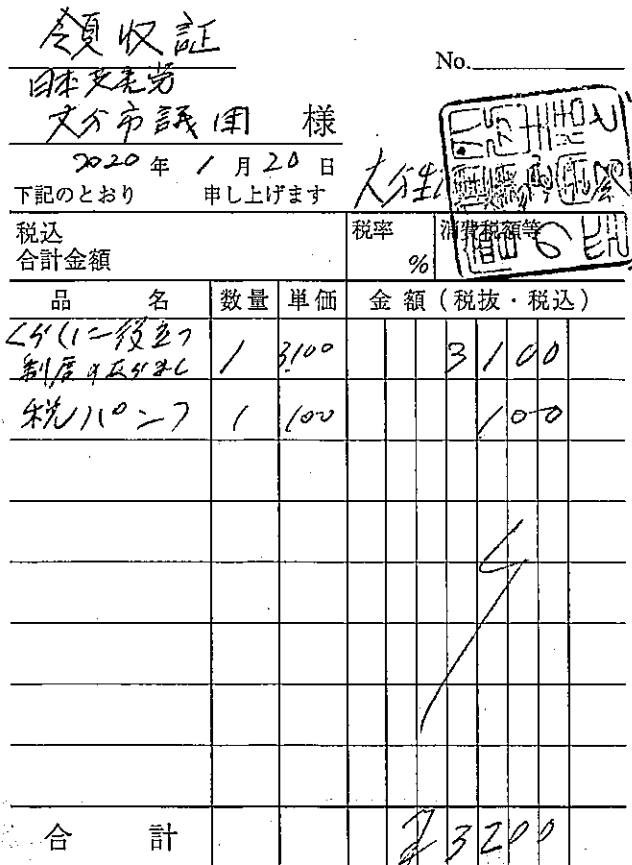 領収証
No.
日本共産党
大分市議団 様
2020年 1月20日
下記のとおり 申し上げます
税込
合計金額
税率 %
消費税額等
品 名 数量 単価 金額(税抜・税込)
くらしに役立つ
制度のあらまし 1 3,100 3100
税パンフ 1 100 100
合 計 ¥3200